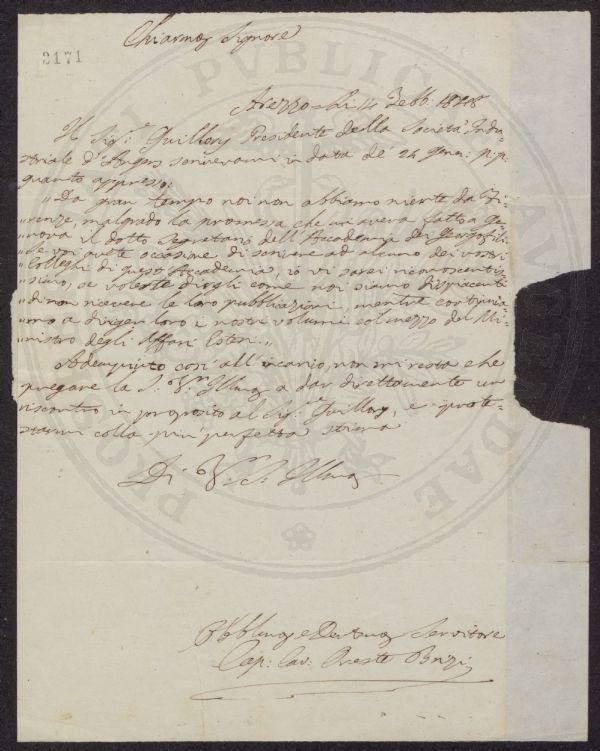 Chiarmo Signore
2171
Arezzo li 14 Febb: 1848
Il Sig.r Guillory Presidente della Società Indu=
striale d'Angers scrivevami in data de' 24 Genn: p:p:
quanto appresso:
"Da gran tempo noi non abbiamo niente da Fi=
"renze, malgrado la promessa che mi aveva fatto a Ge=
"nova il dotto Segretario dell'Accademia dei Georgofili.
"Se voi avete occasione di scrivere ad alcuno dei vostri
"Colleghi di questa Accademia, io vi sarei riconoscentis=
"simo, se voleste dirgli come noi siamo dispiacenti
"di non ricevere le loro pubblicazioni mentre continuia=
"mo a dirigere loro i nostri volumi col mezzo del Mi=
"nistro degli Affari Esteri."
Adempiuto così all'incarico, non mi resta che
pregare la S. V. Illma a dar direttamente un
riscontro in proposito al Sig.r Guillory, e prote=
starmi colla più perfetta stima
Di V. S. Illma
Obblmo e Devmo Servitore
Cap: Cav: Oreste Brizi
PUBLICA
PROSPERITATI